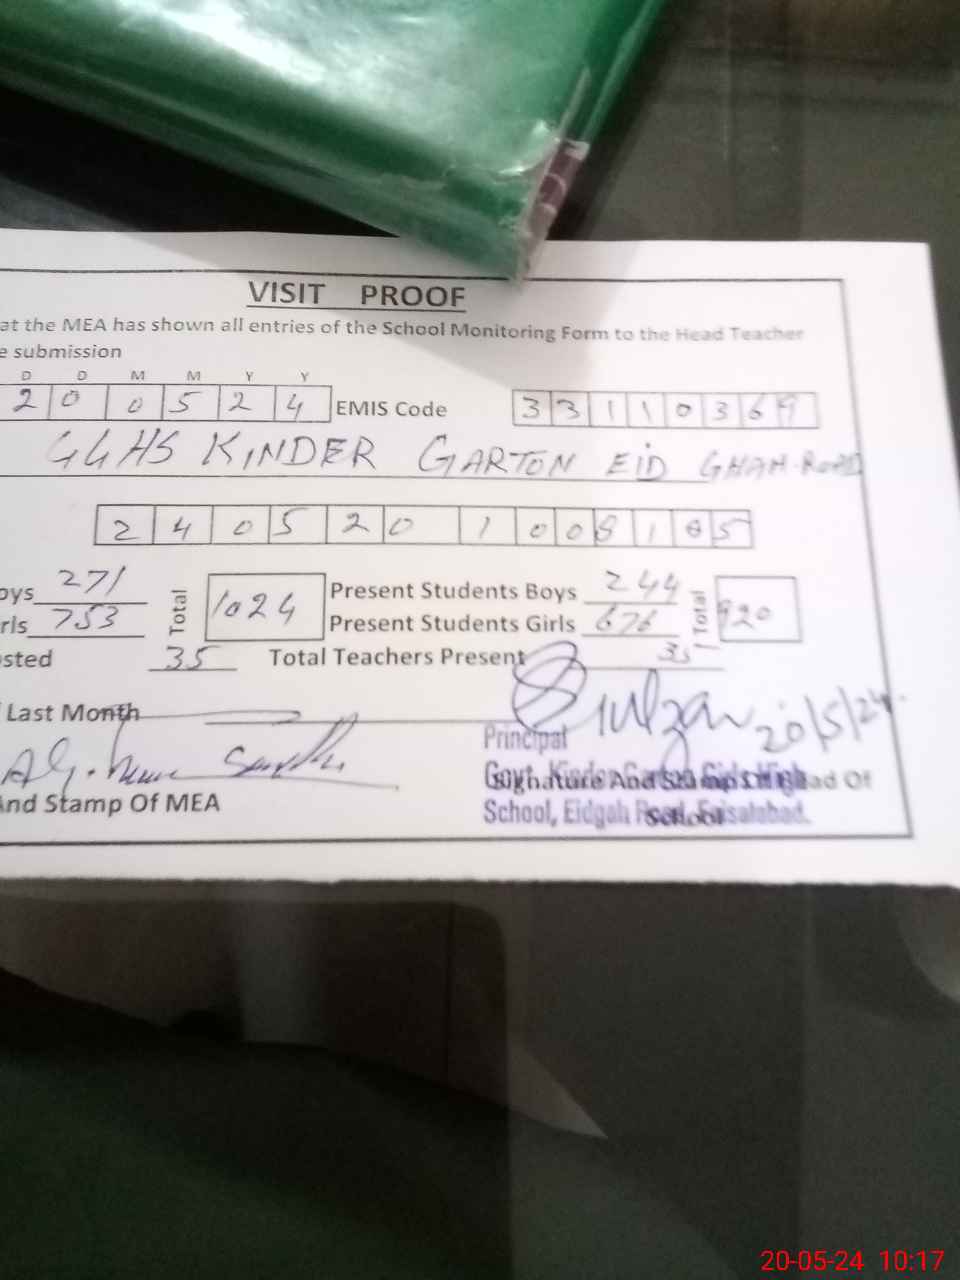 VISIT PROOF
at the MEA has shown all entries of the School Monitoring Form to the Head Teacher
e submission
D D M M Y Y
2 0 0 5 2 4 EMIS Code 3 3 1 1 0 3 6 9
GGHS KINDER GARTON EID GHAH-ROAD
2 4 0 5 2 0 1 0 0 8 1 8 5
oys 271 Total 1024 Present Students Boys 244 Total 920
rls 753 Present Students Girls 676
sted 35 Total Teachers Present 35
Last Month
20/5/24
Principal
Signature And Stamp Of Head Of
And Stamp Of MEA
School, Eidgah Road, Faisalabad.
School
20-05-24 10:17